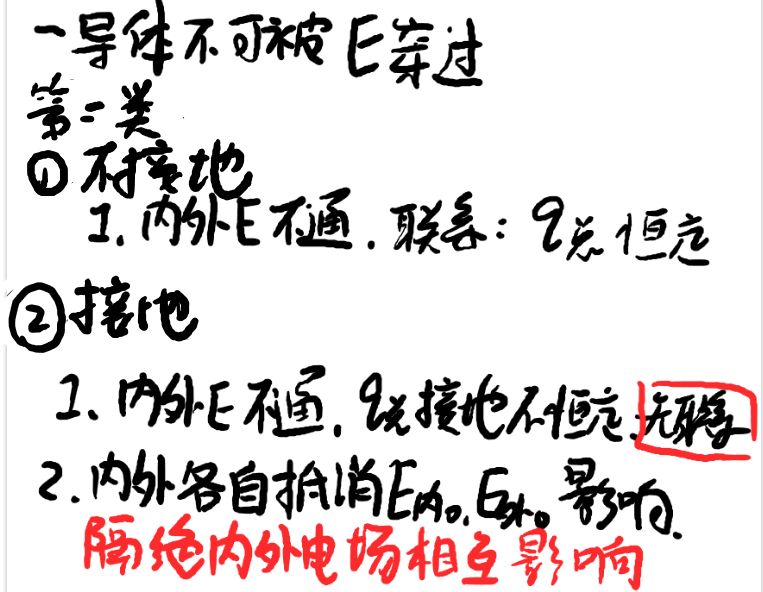 一导体不可被E穿过
第二类
① 不接地
1. 内外E不通. 联系: q总恒定
② 接地
1. 内外E不通. q总接地不恒定. 无联系
2. 内外各自抵消E内。E外。影响.
隔绝内外电场相互影响